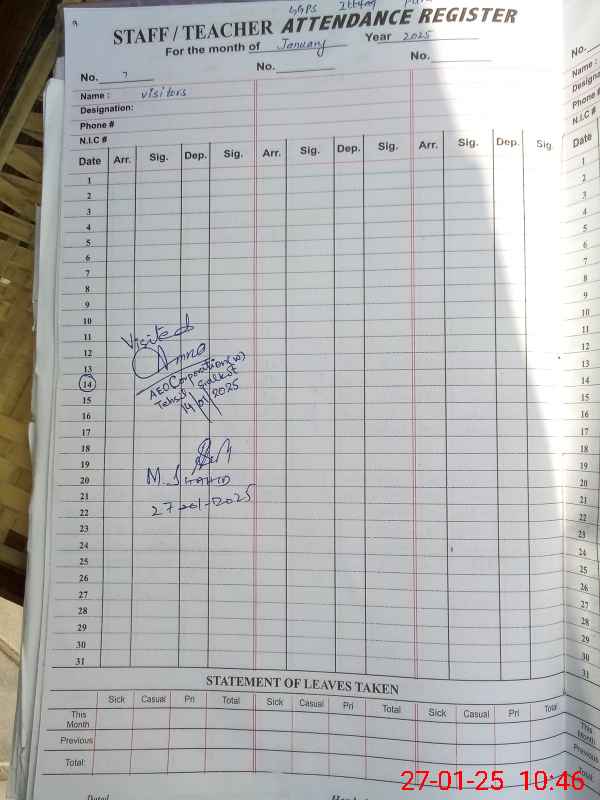 GGPS
STAFF / TEACHER ATTENDANCE REGISTER
For the month of January Year 2025
No. 7 No. No.
Name : visitors
Designation:
Phone #
N.I.C #
Date Arr. Sig. Dep. Sig. Arr. Sig. Dep. Sig. Arr. Sig. Dep. Sig
1
2
3
4
5
6
7
8
9
10
11
12
13
14
15
16
17
18
19
20
21
22
23
24
25
26
27
28
29
30
31
Visited
Amna
AEO Corporation (w)
Tehsil Sialkot
14/01/2025
M. SHAHID
27-01-2025
STATEMENT OF LEAVES TAKEN
Sick Casual Pri Total Sick Casual Pri Total Sick Casual Pri Total
This Month
Previous
Total:
Dated
No.
Name :
Designa
Phone #
N.I.C #
Date
1
2
3
4
5
6
7
8
9
10
11
12
13
14
15
16
17
18
19
20
21
22
23
24
25
26
27
28
29
30
31
This
Month
Previous
Total:
27-01-25 10:46